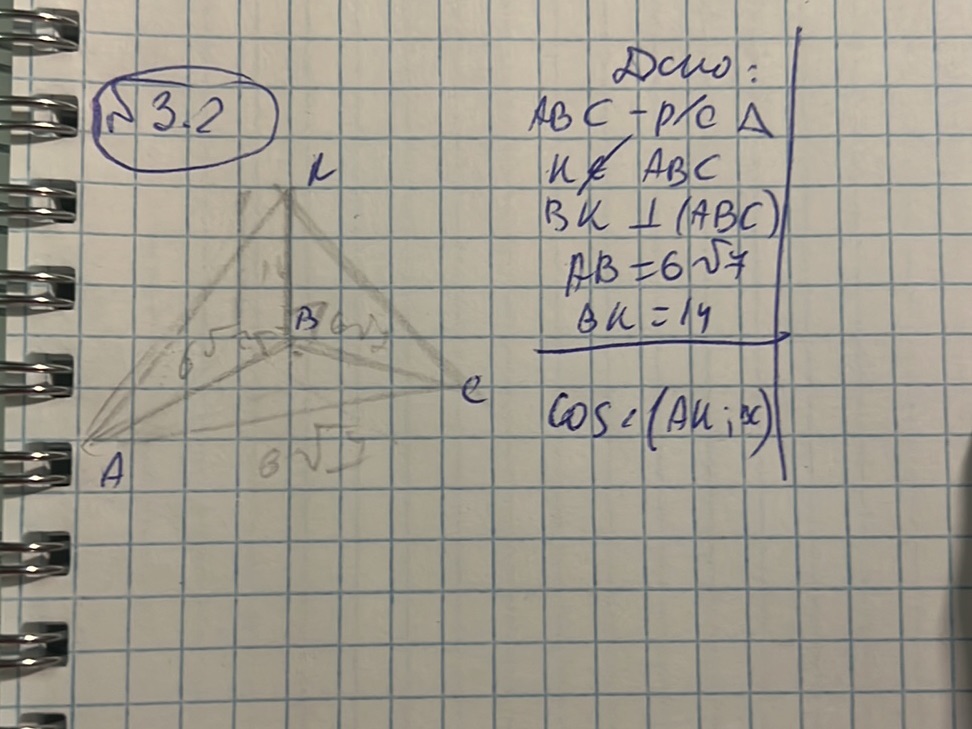 № 3.2
K
B
6√7
C
A
6√7
Дано:
ABC - р/с Δ
K ∉ ABC
BK ⊥ (ABC)
AB = 6√7
BK = 14
cos ∠ (AK;